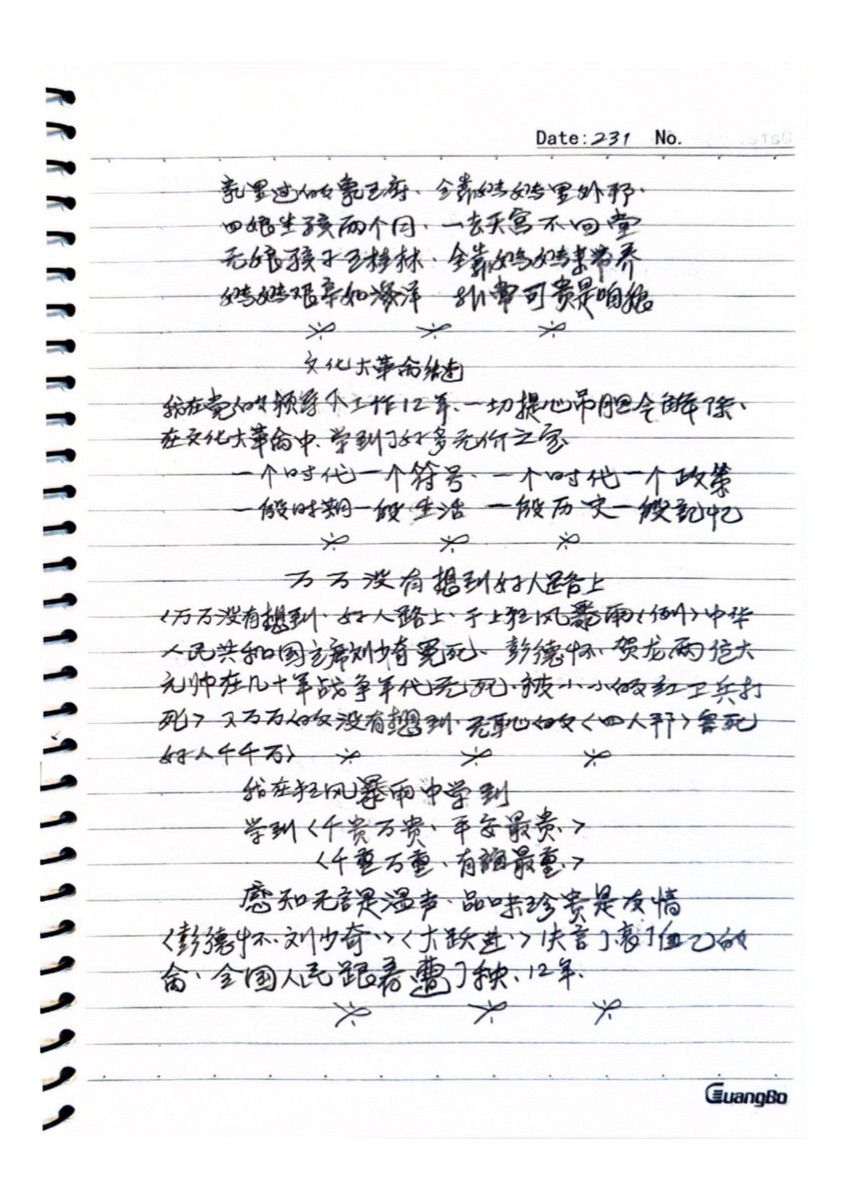 Date:231 No.
家里过的 全靠妈妈里外
四娘生孩两个月、一去天宫不回堂
无娘孩子玉桂林、全靠妈妈来带养
妈妈艰辛如海洋 非常可贵是咱娘
文化大革命结束
我在党的领导个工作12年、一切提心吊胆今解除、
在文化大革命中、学到了好多无价之宝
一个时代一个符号、一个时代一个政策
一般时期一般生活 一般历史一般記忆
万万没有想到好人路上
〈万万没有想到、好人路上、于上狂风暴雨〈例〉中华
人民共和国主席刘少奇冤死、彭德怀、贺龙两位大
元帅在几十年战争年代无死、被小小的红卫兵打
死〉又万万的没有想到、无耻的〈四人邦〉害死
好人千千万〉
我在狂风暴雨中学到
学到〈千贵万贵、平安最贵、〉
〈千重万重、有福最重、〉
感知无言是温声、品味珍贵是友情
〈彭德怀、刘少奇、〉〈大跃进、〉失言了丧了自己的
命、全国人民跟着遭了秧、12年、
GuangBo